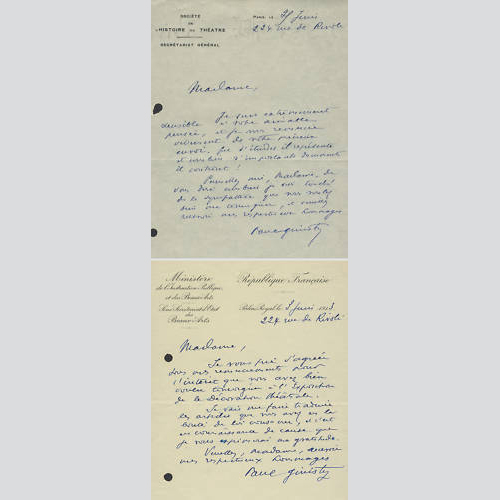 SOCIÉTÉ
DE
L'HISTOIRE DU THÉATRE
SECRÉTARIAT GÉNÉRAL
PARIS, LE 25 Juin
224 rue de Rivoli
Madame,
Je suis extrêmement
sensible à votre aimable
pensée, et je vous remercie
vivement de votre précieux
envoi. Que d'études il représente
et combien d'importants documents
il contient !
Veuillez, Madame,
vous dire combien je suis touché
de la sympathie que vous voulez
bien me témoigner, et veuillez
recevoir mes respectueux hommages
Paul Ginisty
Ministère
de l'Instruction Publique
et des Beaux-Arts
Sous-Secrétariat d'Etat
des
Beaux-Arts
République Française
Palais-Royal, le 8 Juin 1913
224 rue de Rivoli
Madame,
Je vous prie d'agréer
tous mes remerciements pour
l'intérêt que vous avez bien
voulu témoigner à l'Exposition
de la Décoration théâtrale.
Je vais me faire traduire
les articles que vous avez eu la
bonté de lui consacrer, et c'est
en connaissance de cause que
je vous exprimerai ma gratitude.
Veuillez, Madame, recevoir
mes respectueux hommages
Paul Ginisty